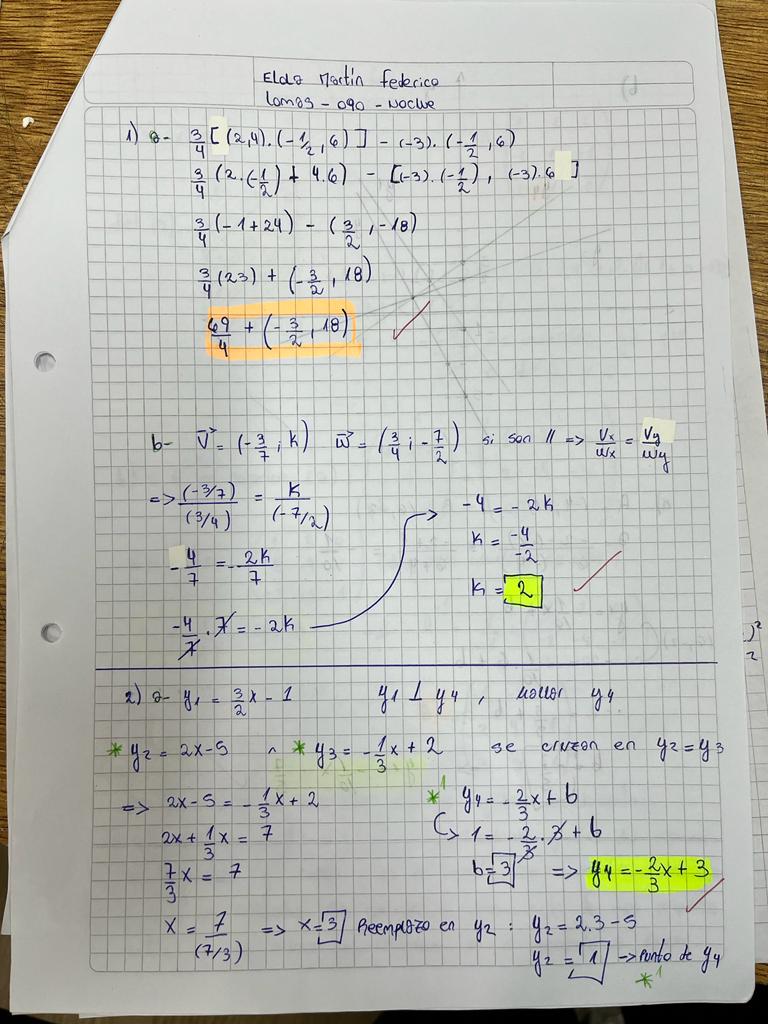 Elda Martín Federico
Lomas - 090 - Noche
1) a- 3/4 [(2,4).(-1/2,6)] - (-3).(-1/2,6)
3/4 (2.(-1/2) + 4.6) - [(-3).(-1/2), (-3).6]
3/4 (-1+24) - (3/2, -18)
3/4 (23) + (-3/2, 18)
69/4 + (-3/2, 18)
b- V⃗ = (-3/7; K) W⃗ = (3/4; -7/2) si son // => Vx/Wx = Vy/Wy
=> (-3/7)/(3/4) = K/(-7/2)
-4/7 = -2K/7
-4/7 . 7 = -2K
-4 = -2K
K = -4/-2
K = 2
2) a- y1 = 3/2x - 1 y1 ⊥ y4, Hallar y4
* y2 = 2x-5 ∧ * y3 = -1/3x + 2 se cruzan en y2 = y3
=> 2x-5 = -1/3x + 2
2x + 1/3x = 7
7/3x = 7
x = 7/(7/3) => x = 3 Reemplazo en y2 : y2 = 2.3-5
y2 = 1 -> Punto de y4
*1
*1 y4 = -2/3x + b
↳ 1 = -2/3.3 + b
b = 3 => y4 = -2/3x + 3